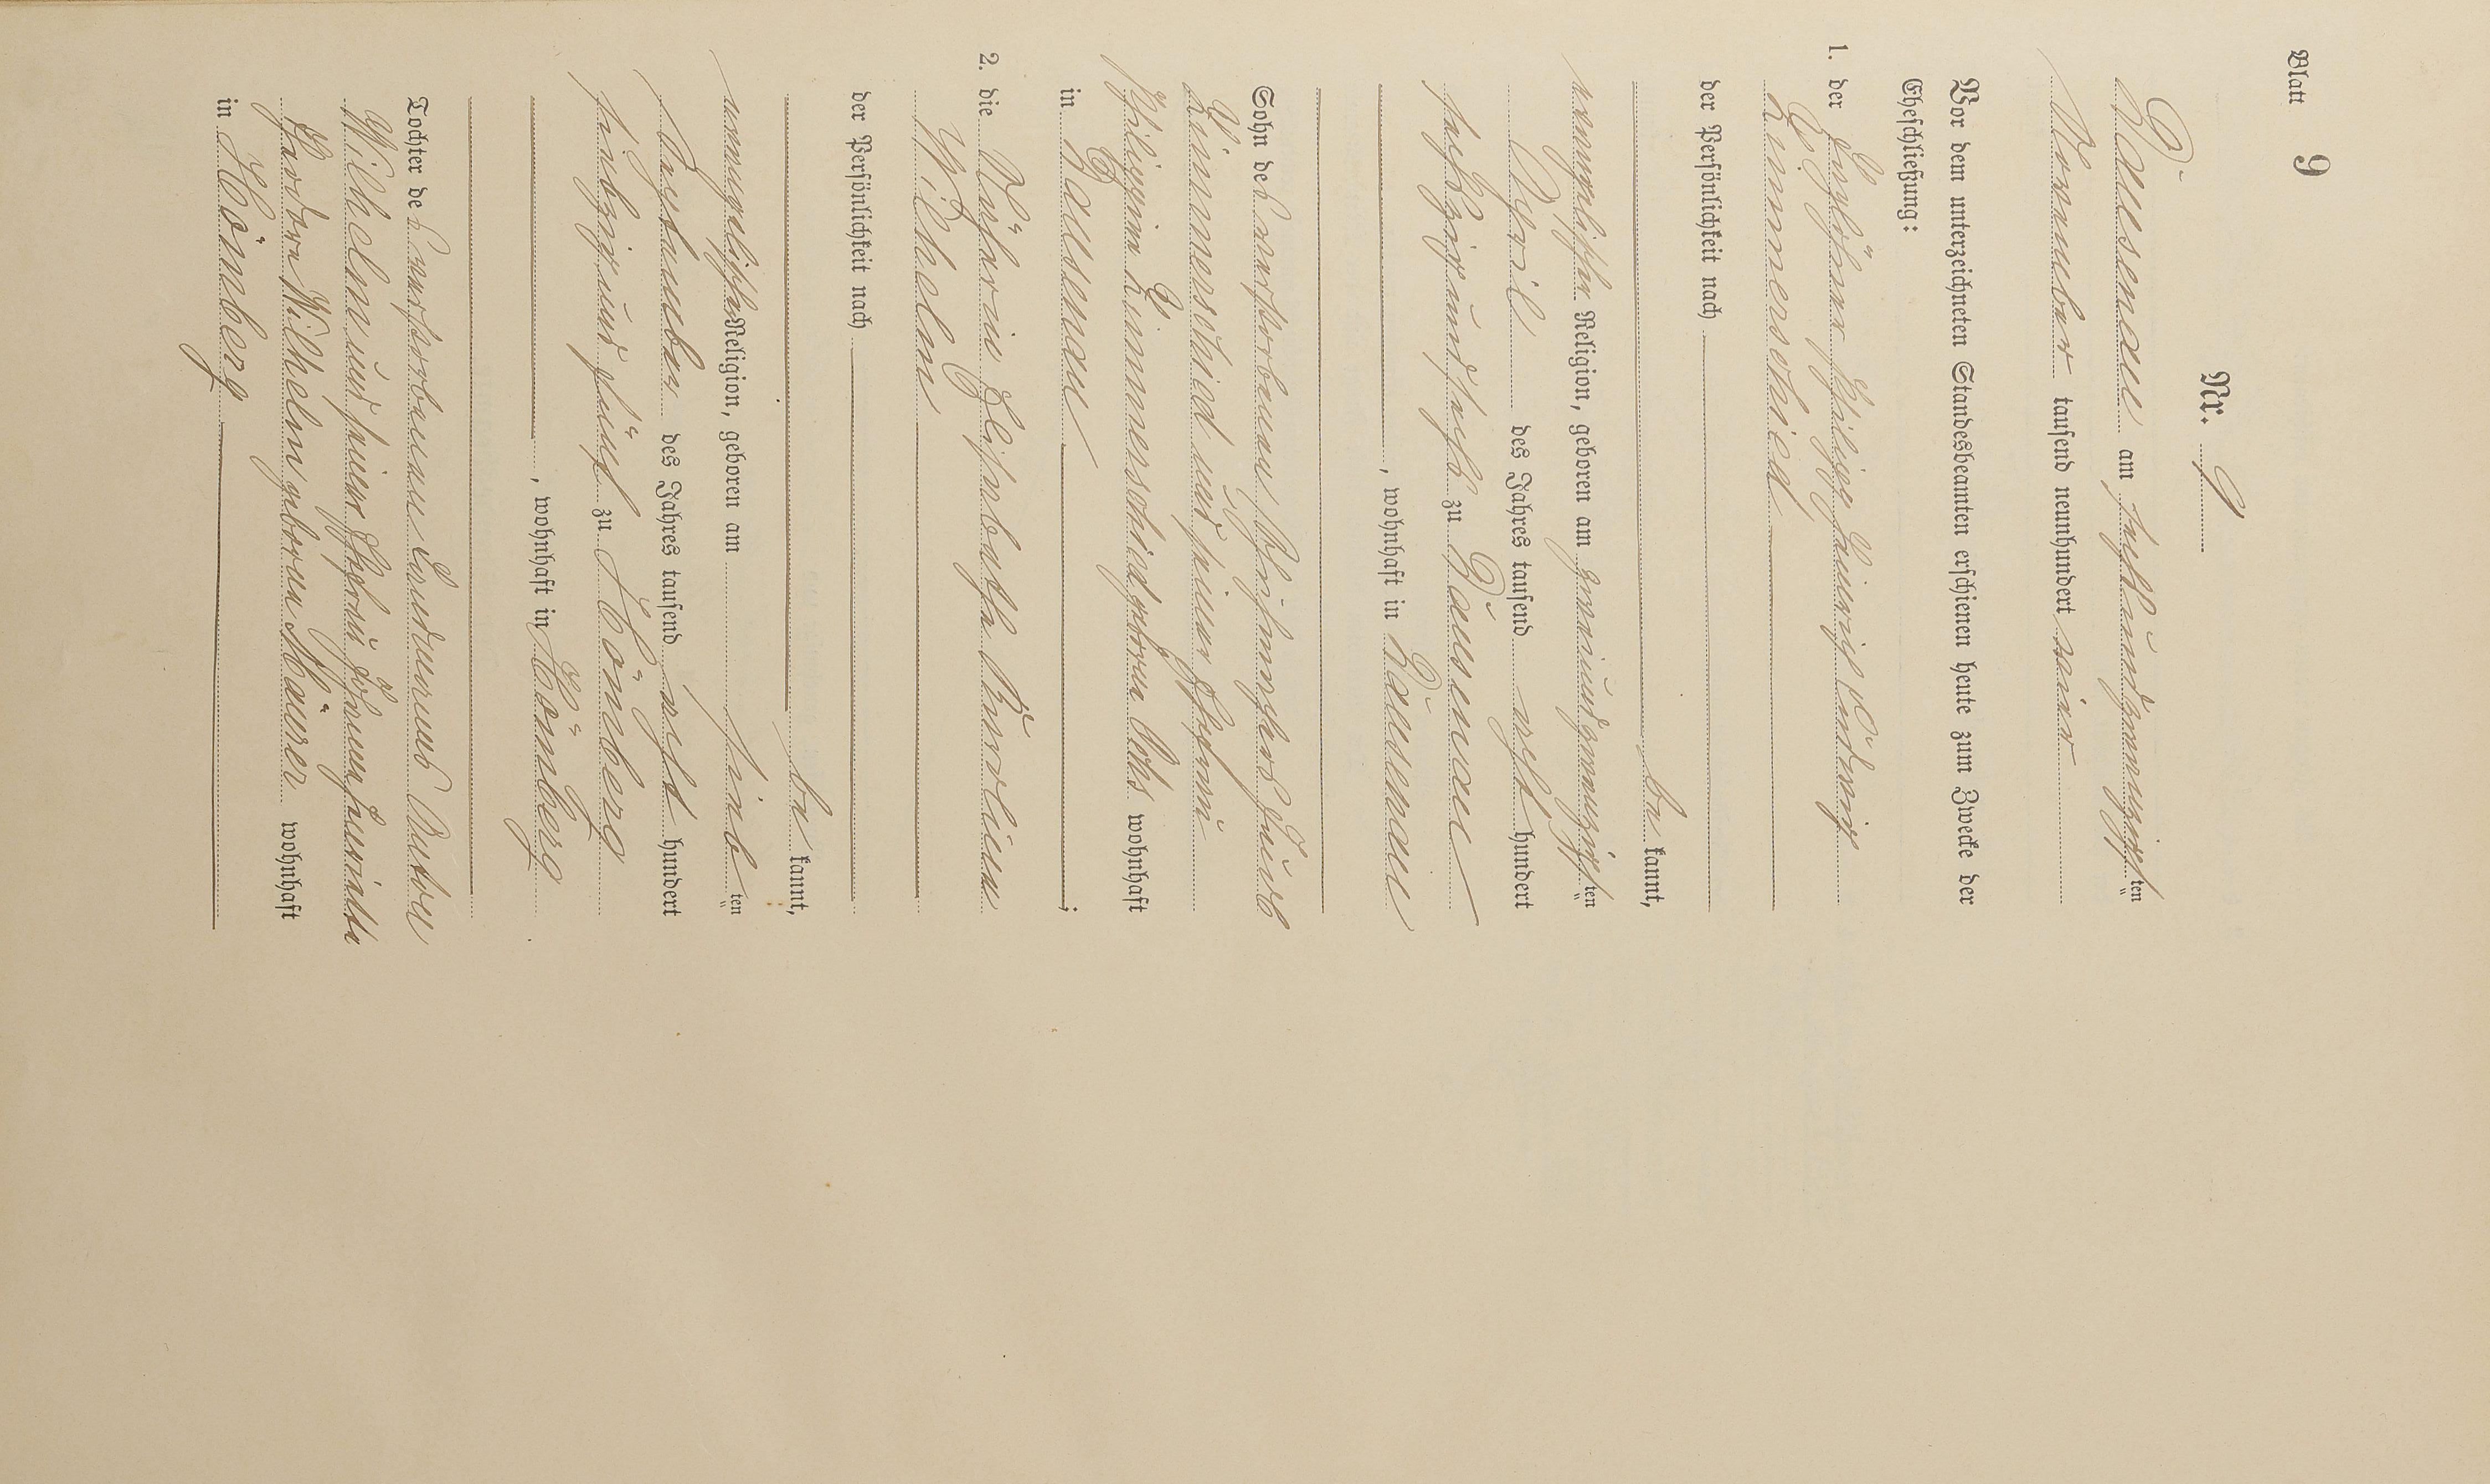 Blatt 9
Nr. 9
Bausenau am sechsundzwanzigsten
November tausend neunhundert vier
Vor dem unterzeichneten Standesbeamten erschienen heute zum Zwecke der
Eheschließung:
1. der Taglöhner Philipp Heinrich Ludwig
Zimmerschied
der Persönlichkeit nach
be kannt,
evangelischer Religion, geboren am zweiundzwanzigsten
April des Jahres tausend acht hundert
sechszigundsechs zu
, wohnhaft in
Sohn des verstorbenen
Zimmerschied und seiner Ehefrau
Philippine Zimmerschied geborene wohnhaft
in ;
2. die Näherin Elisabethe Karoline
Wilhelm
der Persönlichkeit nach
be kannt,
evangelischer Religion, geboren am fünf ten
September des Jahres tausend acht hundert
siebzigundfünf zu Hömberg
, wohnhaft in Hömberg
Tochter des verstorbenen Landmannes Anton
Wilhelm und seiner Ehefrau
Wilhelm geborene Maurer wohnhaft
in Hömberg